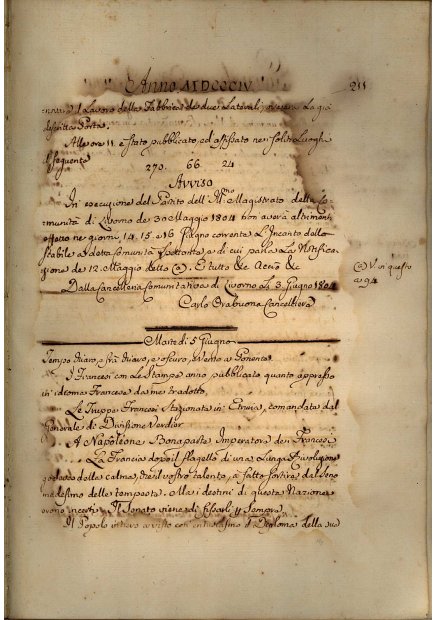 Anno MDCCCIV
211
il Lavoro della Fabbrica de due Laterali, ovvero La già
descritta Porta.
Alle ore 11 è stato pubblicato, ed affissato nei soliti Luoghi
il seguente
270. 66. 24
Avviso
In esecuzione del Partito dell' Ill.mo Magistrato della Co-
munità di Livorno de 30 Maggio 1804 non averà altrimenti
effetto ne giorni 14. 15. e 16 Giugno corrente L'Incanto dello
stabile a detta Comunità e di cui parla La Notifica-
zione de 12. Maggio detto @. E tutto &c Acciò &c
@ V. in questo
a 94
Dalla Cancelleria Comunitativa di Livorno Li 3. Giugno 1804
Carlo Orabuona Cancelliere
Martedì 5 Giugno
Tempo chiaro, e oscuro, e vento a Ponente.
I Francesi con Le Stampe anno pubblicato quanto appresso
in idioma Francese da me tradotto,
Le Truppe Francesi Stazionate in Etruria, comandate dal
Generale di Divisione Verdier
A Napoleone Bonaparte Imperatore dei Francesi
La Francia dopo il flagello di una Lunga Rivoluzione
godeva della calma, che il vostro talento, a fatto sortire dal seno
medesimo delle tempeste. Ma i destini di questa Nazione
erano incerti. Il Senato viene di fissarli p sempre.
Il Popolo intiero a visto con entusiasmo il Diploma della sua